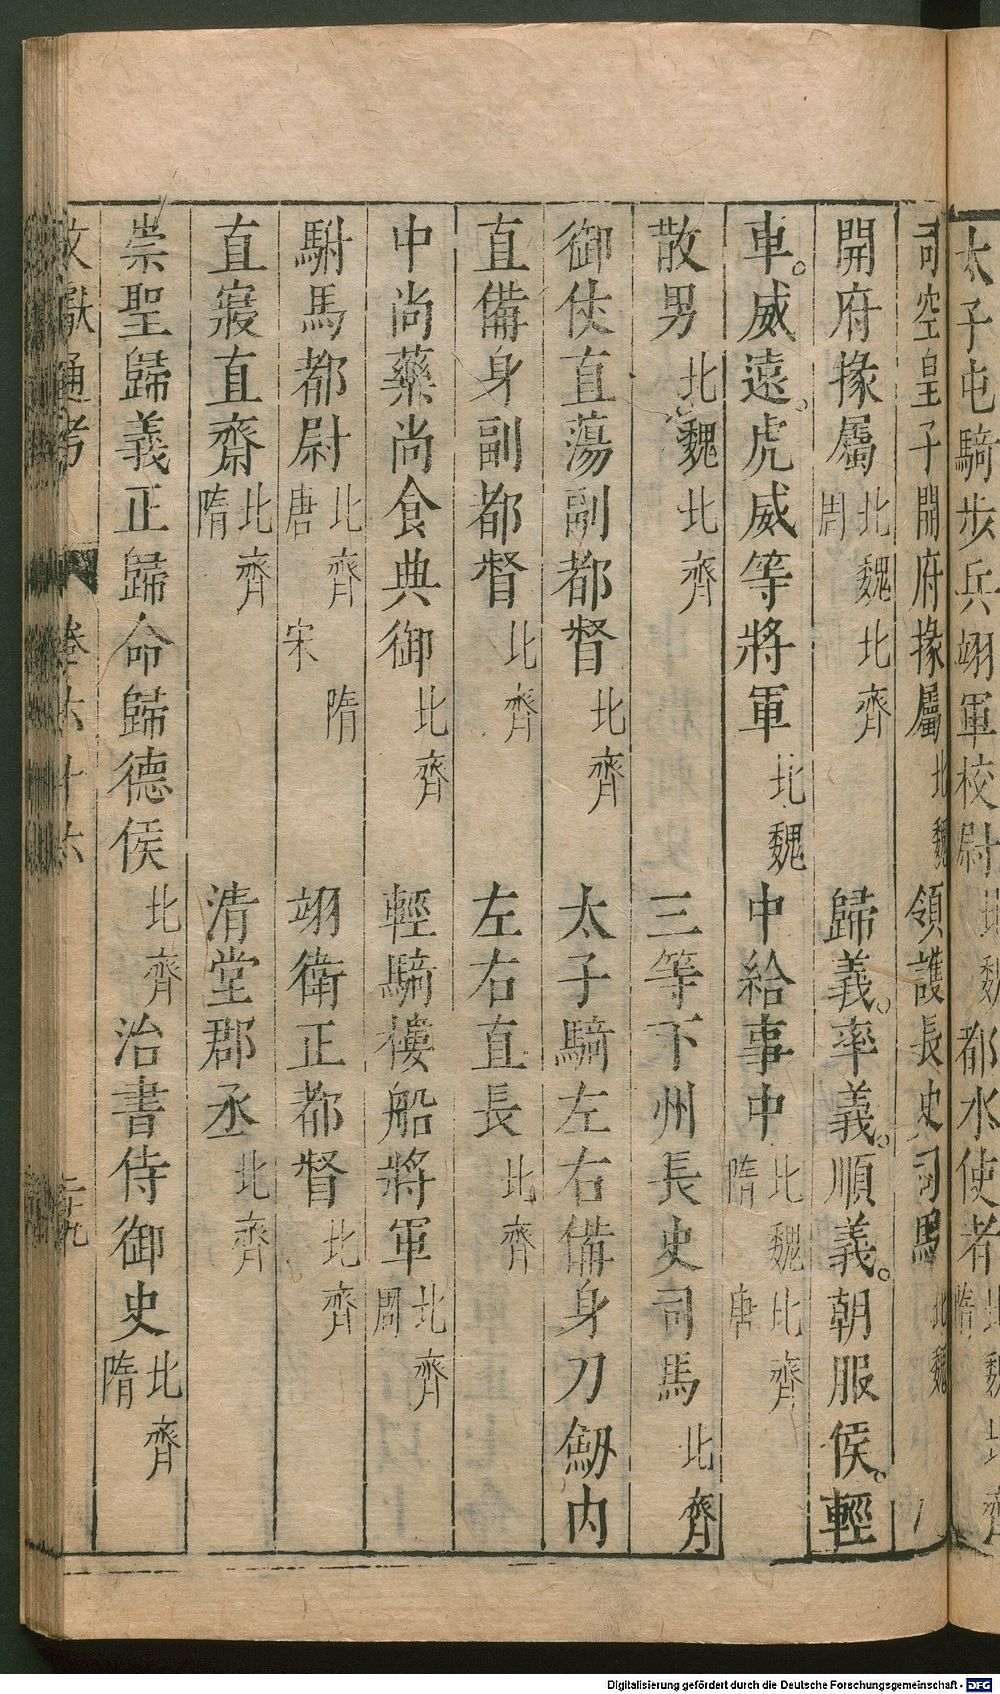 太子屯騎步兵翊軍校尉北魏都水使者北魏北齊隋
司空皇子開府掾屬北魏領護長史司馬北魏
開府掾屬北魏北齊周歸義。率義。順義。朝服侯。輕
車。威遠。虎威等將軍北魏中給事中北魏北齊隋唐
散男北魏北齊三等下州長史司馬北齊
御仗直蕩副都督北齊太子騎左右備身刀劒內
直備身副都督北齊左右直長北齊
中尚藥尚食典御北齊輕騎樓船將軍北齊周
駙馬都尉北齊隋唐宋翊衛正都督北齊
直寢直齋北齊隋清堂郡丞北齊
崇聖歸義正歸命歸德侯北齊治書侍御史北齊隋
文獻通考 卷六十六 二十九
Digitalisierung gefördert durch die Deutsche Forschungsgemeinschaft - DFG